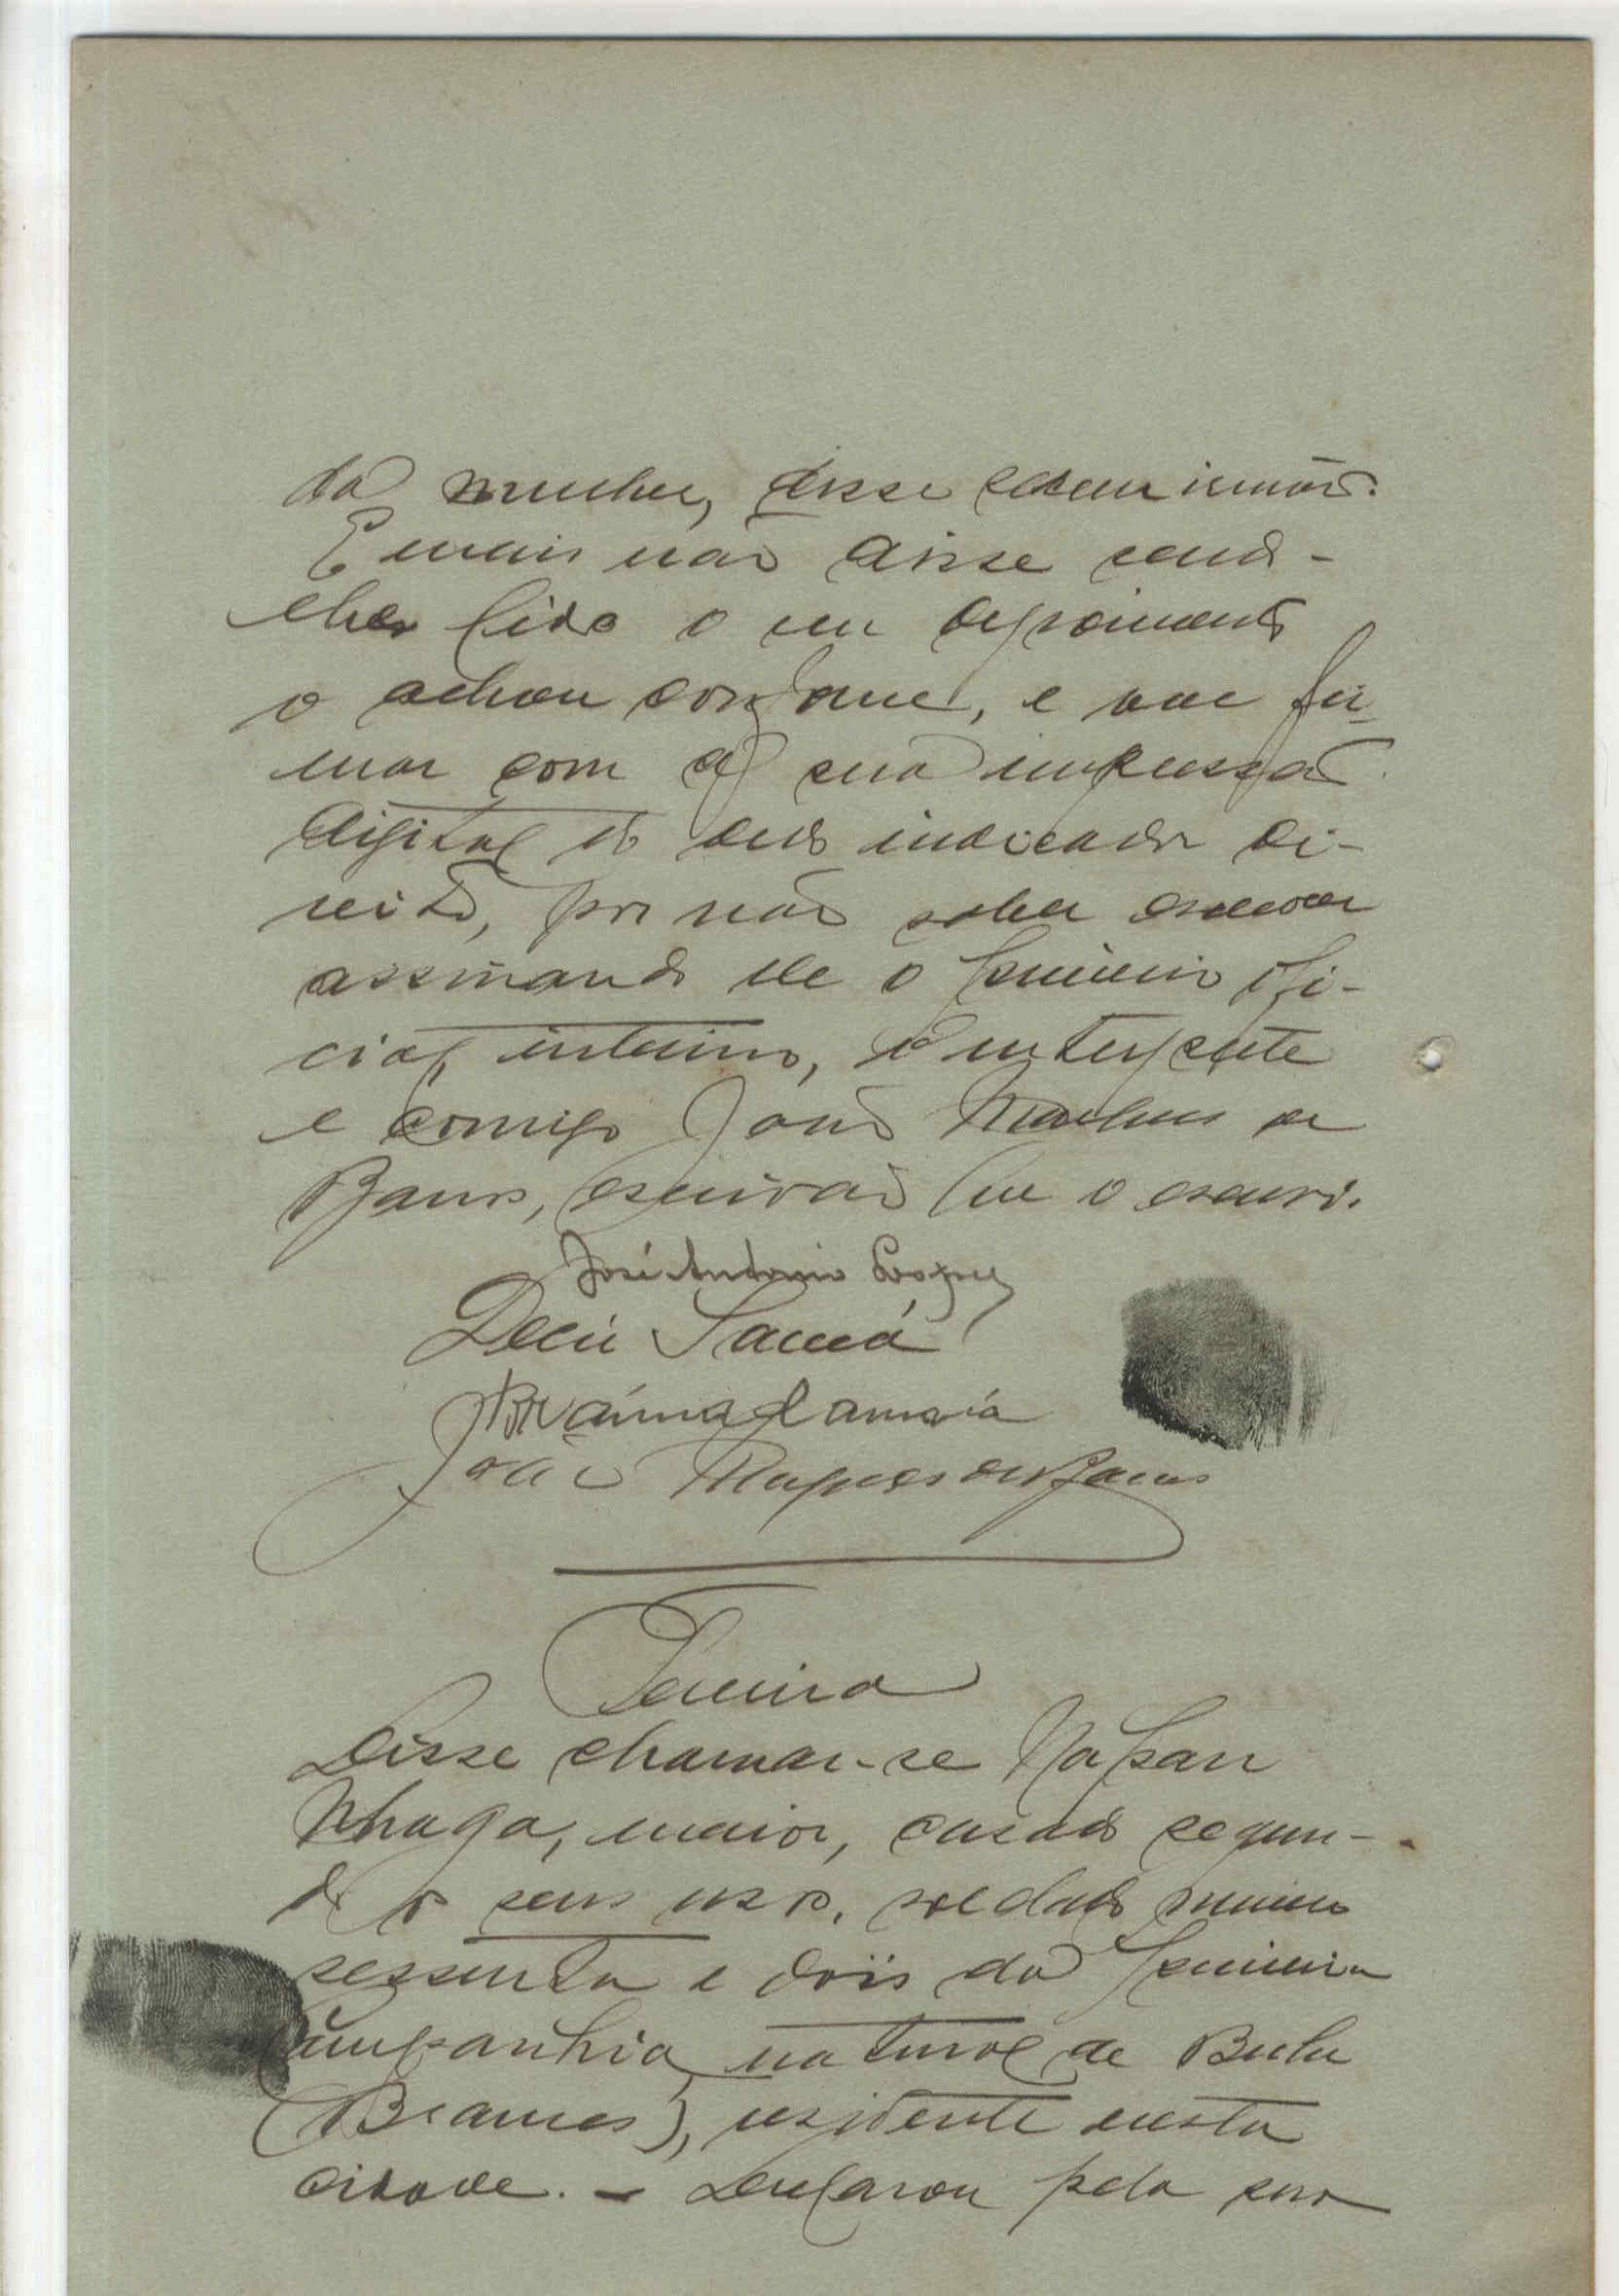 da mulher, disse serem irmãos.
E mais não disse sendo-
lhe lido o seu depoimento
o achou conforme, e vae fir-
mar com a sua impressão
digital do dedo indicador di-
reito, por não saber escrever
assinando ele o primeiro ofi-
cial interino, o interprete
e comigo João Marques de
Barros, escrivão que o escrevi.
José Antonio
Samá
João Marques de Barros
Terceira
Disse chamar-se
Nhaga, maior, casado segun-
do os seus usos, soldado numero
sessenta e dois da primeira
companhia, natural de Bula
(Brames), residente nesta
cidade. - Declarou pela sua